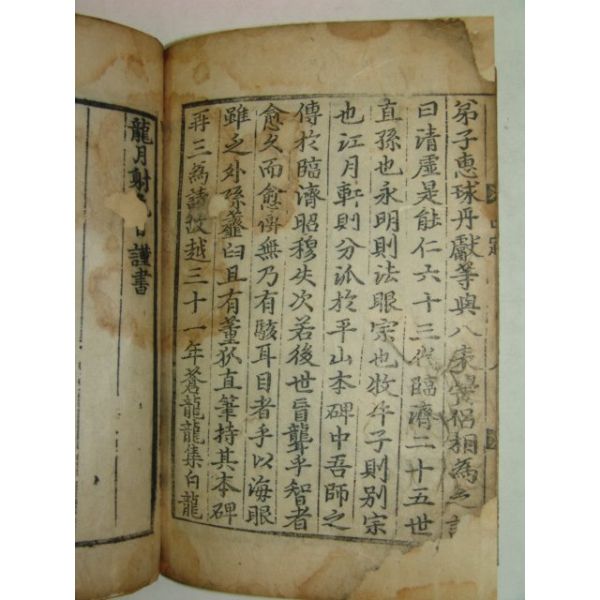 弟子惠球丹獻等與八表侶相為
曰清虛是能仁六十三代臨濟二十五世
直孫也永明則法眼宗也牧牛子則別宗
也江月軒則分派於平山本碑中吾師之
傳於臨濟昭穆失次若後世盲聾乎智者
愈久而愈傳無乃有駭耳目者乎以海眼
雖乏外孫虀臼且有董狐直筆持其本碑
再三為請故越三十一年蒼龍龍集白龍
龍月射日謹書